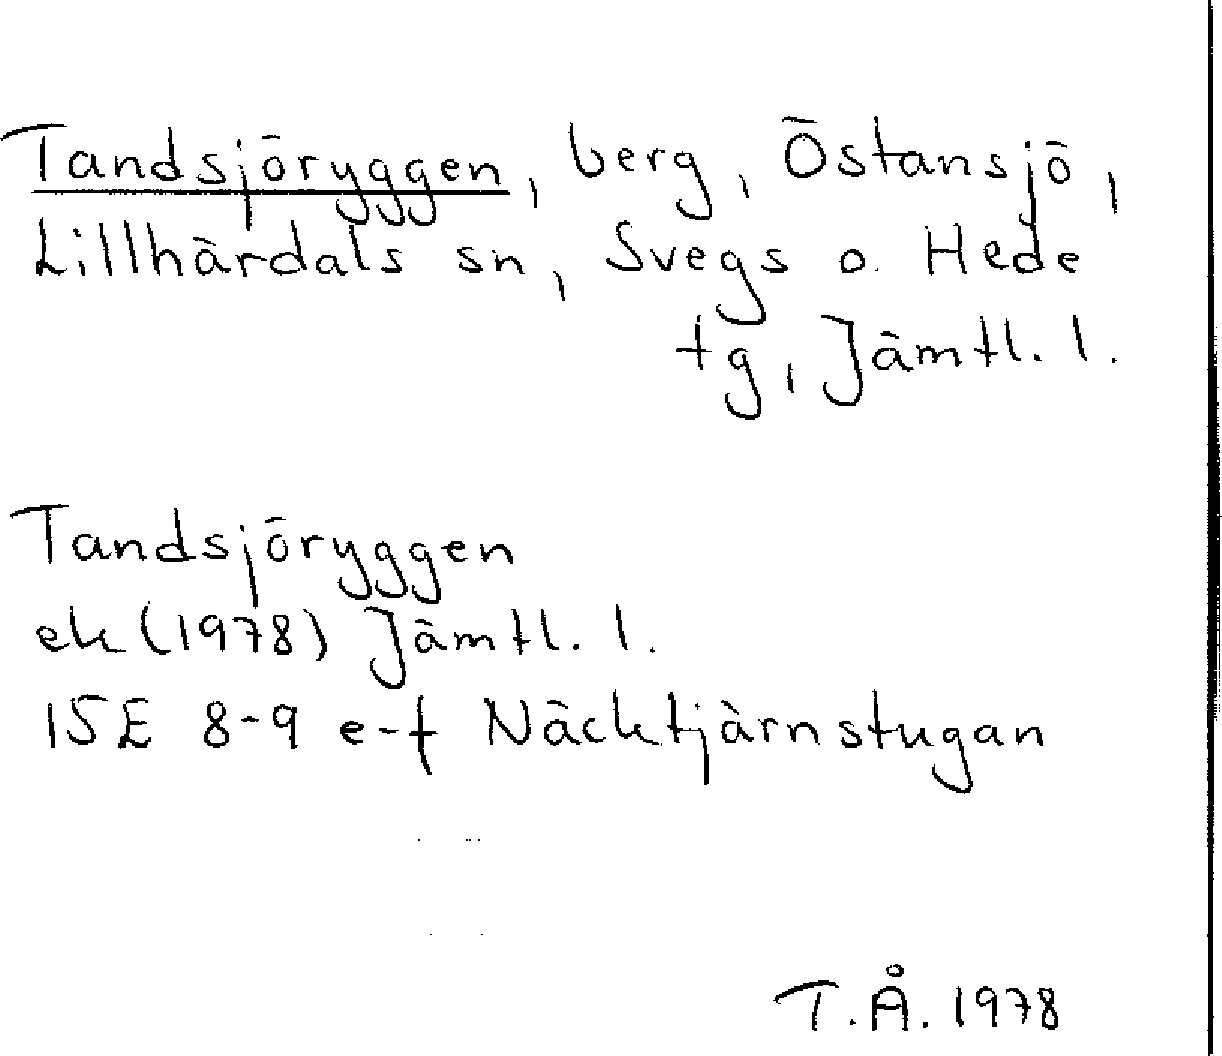 Tandsjöryggen, berg, Östansjö,
Lillhärdals sn, Svegs o. Hede
tg, Jämtl. l.
Tandsjöryggen
ek (1978) Jämtl. l.
15E 8-9 e-f Näcktjärnstugan
T.Å. 1978